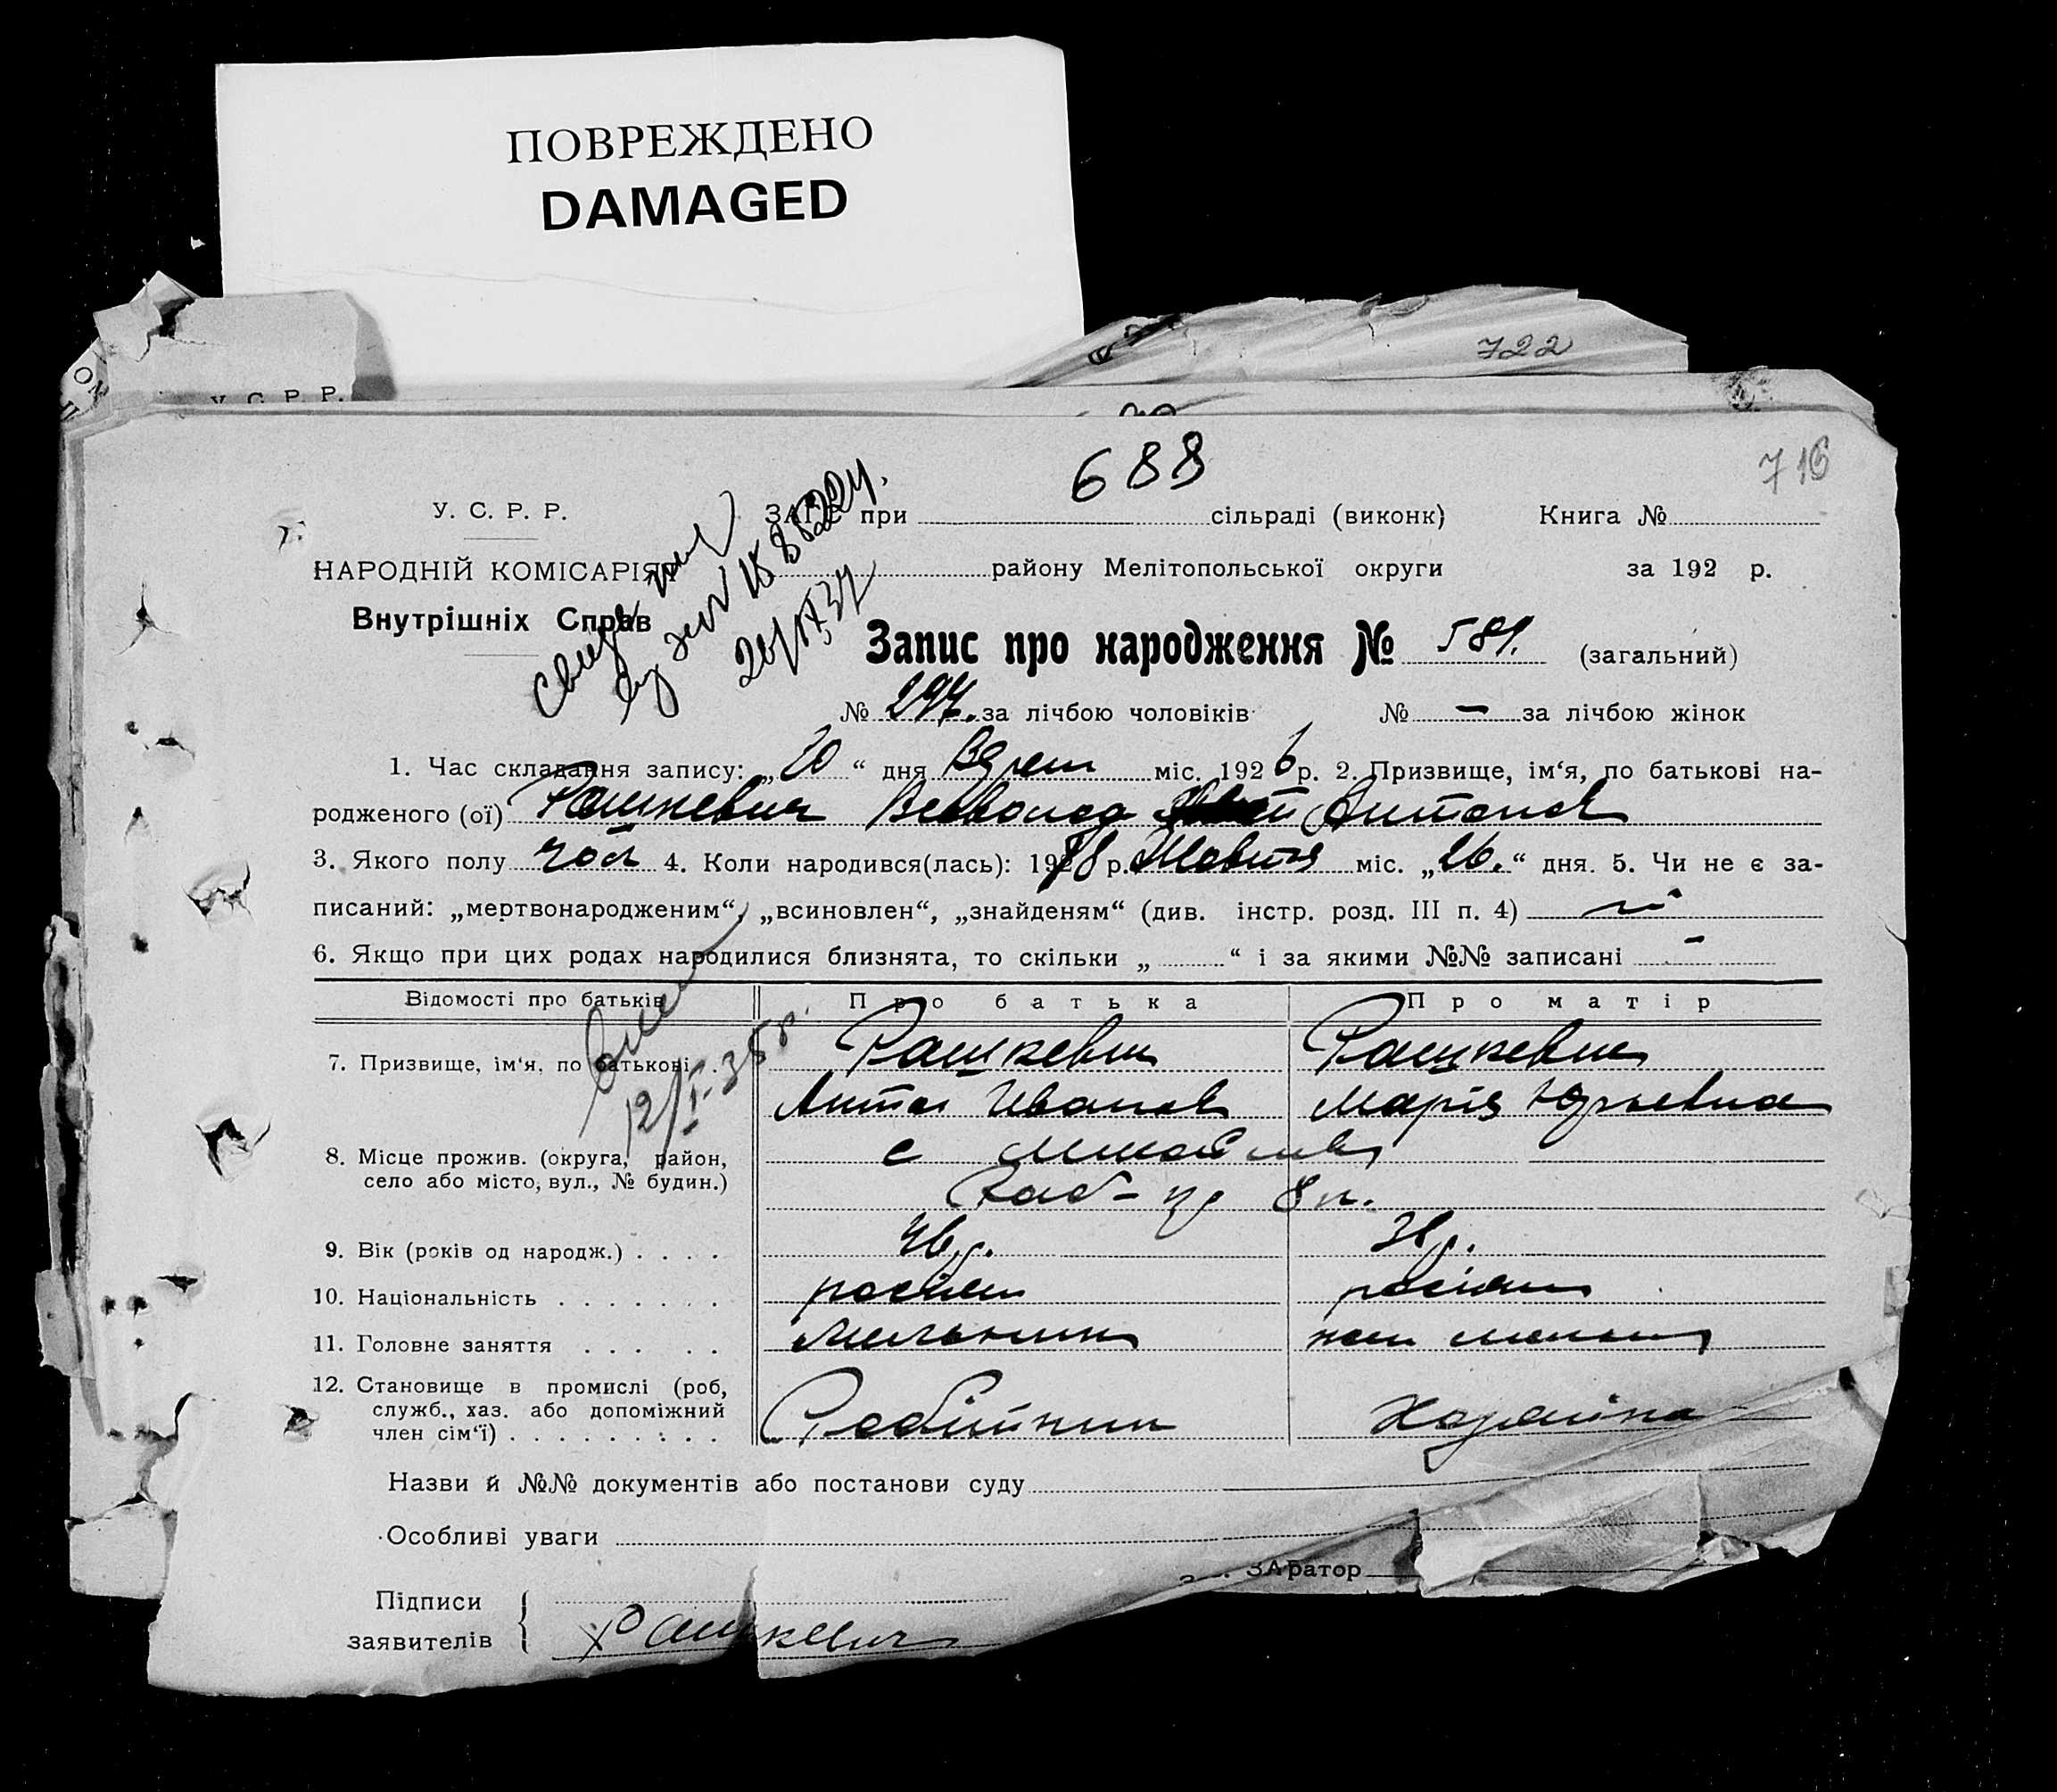 ПОВРЕЖДЕНО
DAMAGED
722
У. С. Р. Р.
688
716
У. С. Р. Р.
ЗАГС при сільраді (виконк) Книга №
НАРОДНІЙ КОМІСАРІЯТ району Мелітопольської округи за 192 р.
Внутрішніх Справ
26/IX 37
Запис про народження № 581. (загальний)
№ 294. за лічбою чоловіків № — за лічбою жінок
1. Час складання запису: „20“ дня міс. 1926 р. 2. Призвище, ім‘я, по батькові на-
родженого (ої) Рашкевич Всеволод Антонов
3. Якого полу чол 4. Коли народився(лась): 1918 р. Жовтня міс. „26.“ дня. 5. Чи не є за-
писаний: „мертвонародженим“, „всиновлен“, „знайденям“ (див. інстр. розд. III п. 4) ні
6. Якщо при цих родах народилися близнята, то скільки „ “ і за якими №№ записані -
Відомості про батьків Про батька Про матір
7. Призвище, ім‘я, по батькові . . Рашкевич Рашкевич
Антон Иванов Марія Юрьевна
12/I-38 р.
8. Місце прожив. (округа, район, с
село або місто, вул., № будин.)
9. Вік (років од народж.) . . . . 46 р. 38 р.
10. Національність . . . . . . . росіян росіян
11. Головне заняття . . . . . Мельник
12. Становище в промислі (роб, служб., хаз. або допоміжний член сім‘ї) . . . . . . . . . Робітник Хазяйка
Назви й №№ документів або постанови суду
Особливі уваги
Підписи
заявителів { Рашкевич